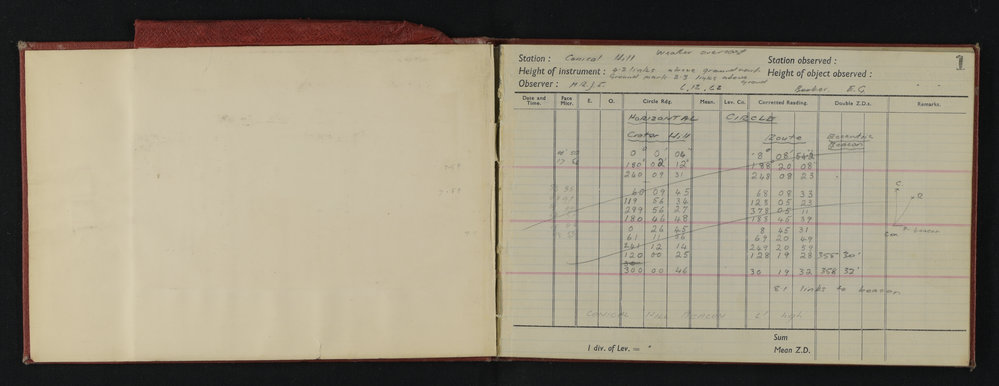 1
Weather overcast
Station : Conical Hill Station observed :
Height of instrument : 4.2 links above ground mark Height of object observed :
Ground mark 2.3 links above
Observer : Booker. E.G.
Date and Time. Face Micr. E. O. Circle Rdg. Mean. Lev. Co. Corrected Reading. Double Z.D.s. Remarks.
HORIZONTAL CIRCLE
Crater Hill Route Eccentric Beacon
0° 0' 04" 8° 08'
180° 02' 12" 188 20 08
240 09 31 248 08 23
60 09 45 68 08 33
119 56 34 128 05 23
299 56 27 378 05 11
180 46 48 183 46 39
0 26 45 8 45 31
61 11 69 20 49
241 12 14 249 20 59
120 00 25 128 19 28 355° 30'
300 00 46 30 19 32 358 32'
81 links to beacon
CONICAL HILL BEACON
Sum
1 div. of Lev. = " Mean Z.D.